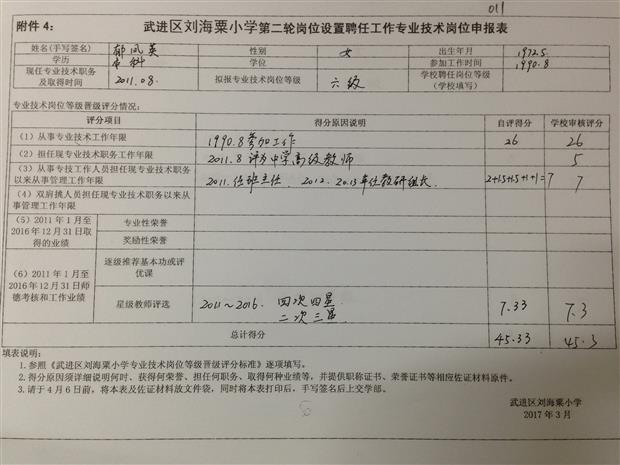 011
附件 4：
武进区刘海粟小学第二轮岗位设置聘任工作专业技术岗位申报表
姓名(手写签名) 郁凤英 性别 女 出生年月 1972.5
学历 本科 学位 参加工作时间 1990.8
现任专业技术职务及取得时间 2011.08. 拟报专业技术岗位等级 六级 学校聘任岗位等级（学校填写）
专业技术岗位等级晋级评分情况：
评分项目 得分原因说明 自评得分 学校审核评分
（1）从事专业技术工作年限 1990.8参加工作 26 26
（2）担任现专业技术职务工作年限 2011.8 评为中学高级教师 5
（3）从事专技工作人员担任现专业技术职务以来从事管理工作年限 2011.任班主任、2012.2013年任教研组长. 2+1.5+1.5+1+1=7 7
（4）双肩挑人员担任现专业技术职务以来从事管理工作年限
（5）2011 年 1 月至 2016 年 12 月 31 日取得的业绩 专业性荣誉
奖励性荣誉
（6）2011 年 1 月至 2016 年 12 月 31 日师德考核和工作业绩 逐级推荐基本功或评优课
星级教师评选 2011～2016. 四次四星. 7.33 7.3
二次三星.
总计得分 45.33 45.3
填表说明：
1.参照《武进区刘海粟小学专业技术岗位等级晋级评分标准》逐项填写。
2.得分原因须详细说明何时、获得何荣誉、担任何职务、取得何种业绩等，并提供职称证书、荣誉证书等相应佐证材料原件。
3.请于 4 月 6 日前，将本表及佐证材料放文件袋，同时将本表打印后，手写签名后上交学部。
武进区刘海粟小学
2017 年 3 月